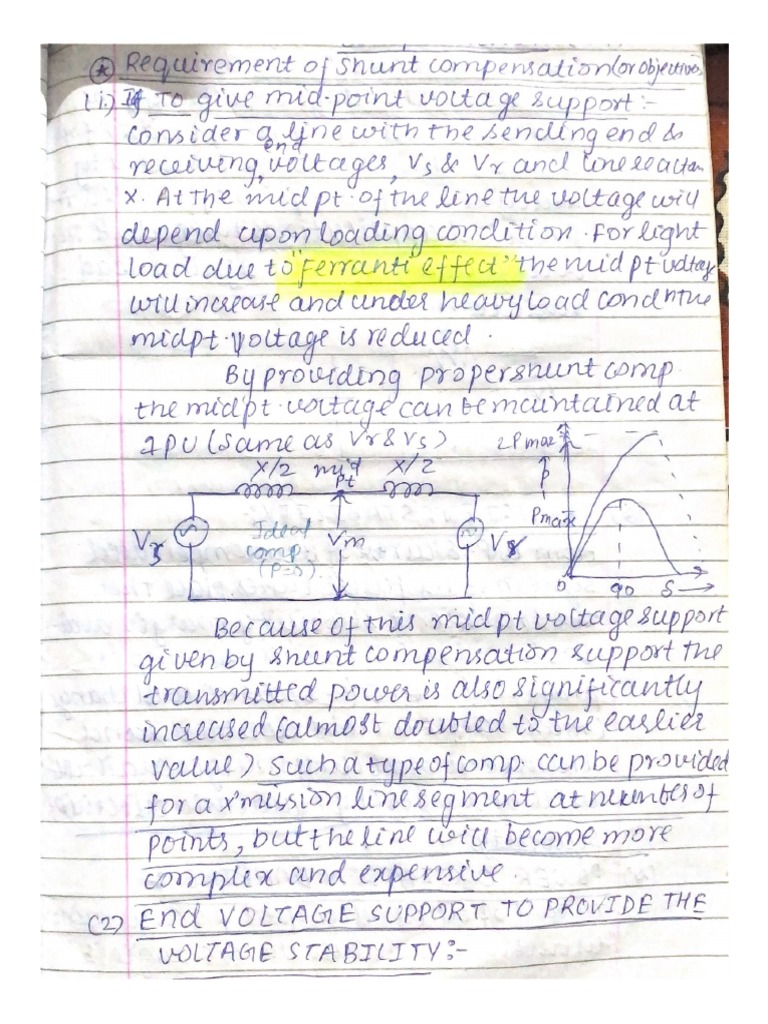 * Requirement of shunt compensation (or objectives
(1.) To give mid-point voltage support:-
consider a line with the sending end &
receiving end voltages, Vs & Vr and line reactan
x. At the mid pt. of the line the voltage will
depend upon loading condition. For light
load due to "ferranti effect" the mid pt voltag
will increase and under heavy load condn the
midpt. voltage is reduced.
By providing proper shunt comp.
the midpt. voltage can be maintained at
1PU (same as Vr & Vs)
x/2 mid pt x/2
Vs Ideal comp. (P=0). Vm Vr
2Pmax
P
Pmax
0 90 δ→
Because of this mid pt voltage support
given by shunt compensation support the
transmitted power is also significantly
increased (almost doubled to the earlier
value) such a type of comp. can be provided
for a x'mission line segment at number of
points, but the line will become more
complex and expensive.
(2) End VOLTAGE SUPPORT TO PROVIDE THE
VOLTAGE STABILITY:-